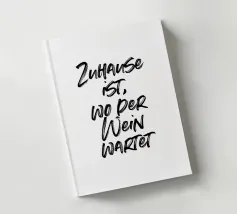 Zuhause
ist,
wo der
Wein
wartet